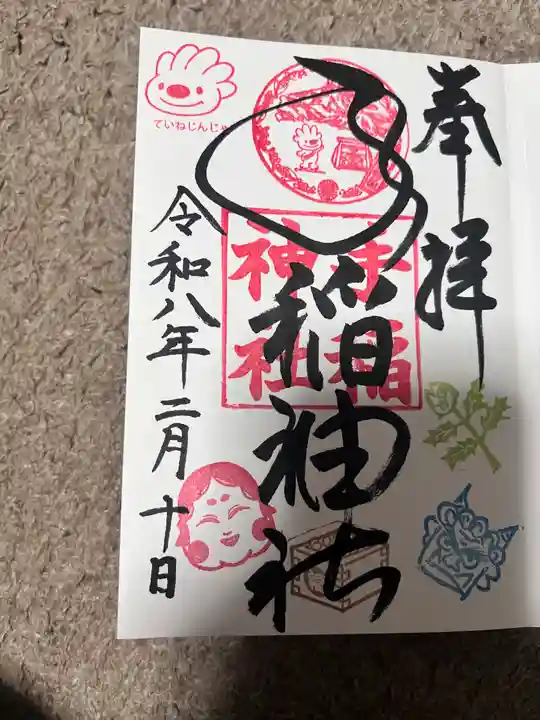 奉拝
手稲神社
手稲
神社
令和八年二月十日
ていねじんじゃ